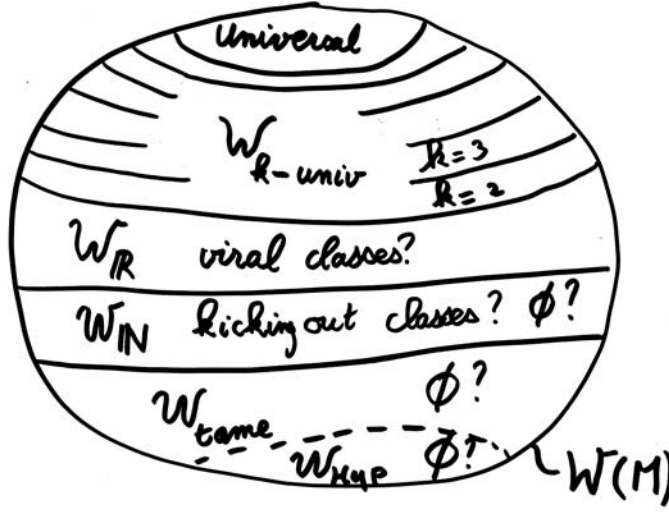 Universal
W k-univ
k=3
k=2
W_R viral classes?
W_IN kicking out classes? ϕ?
ϕ?
W_tame
W_Hyp ϕ?
W(M)